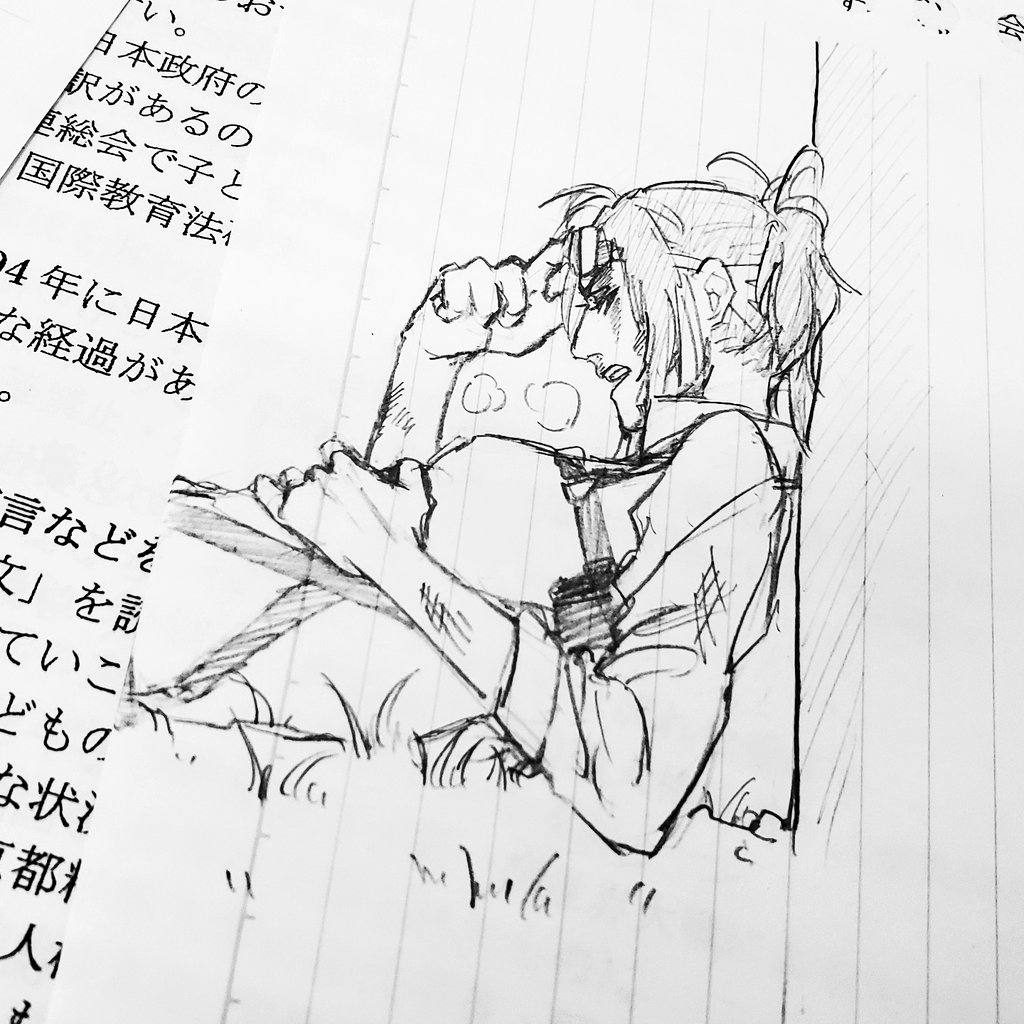 のお
い。
日本政府の
訳があるの
連総会で子と
国際教育法
94年に日本
な経過があ
。
言などを
文」を
ていこ
どもの
な状
都
人
も
す
会